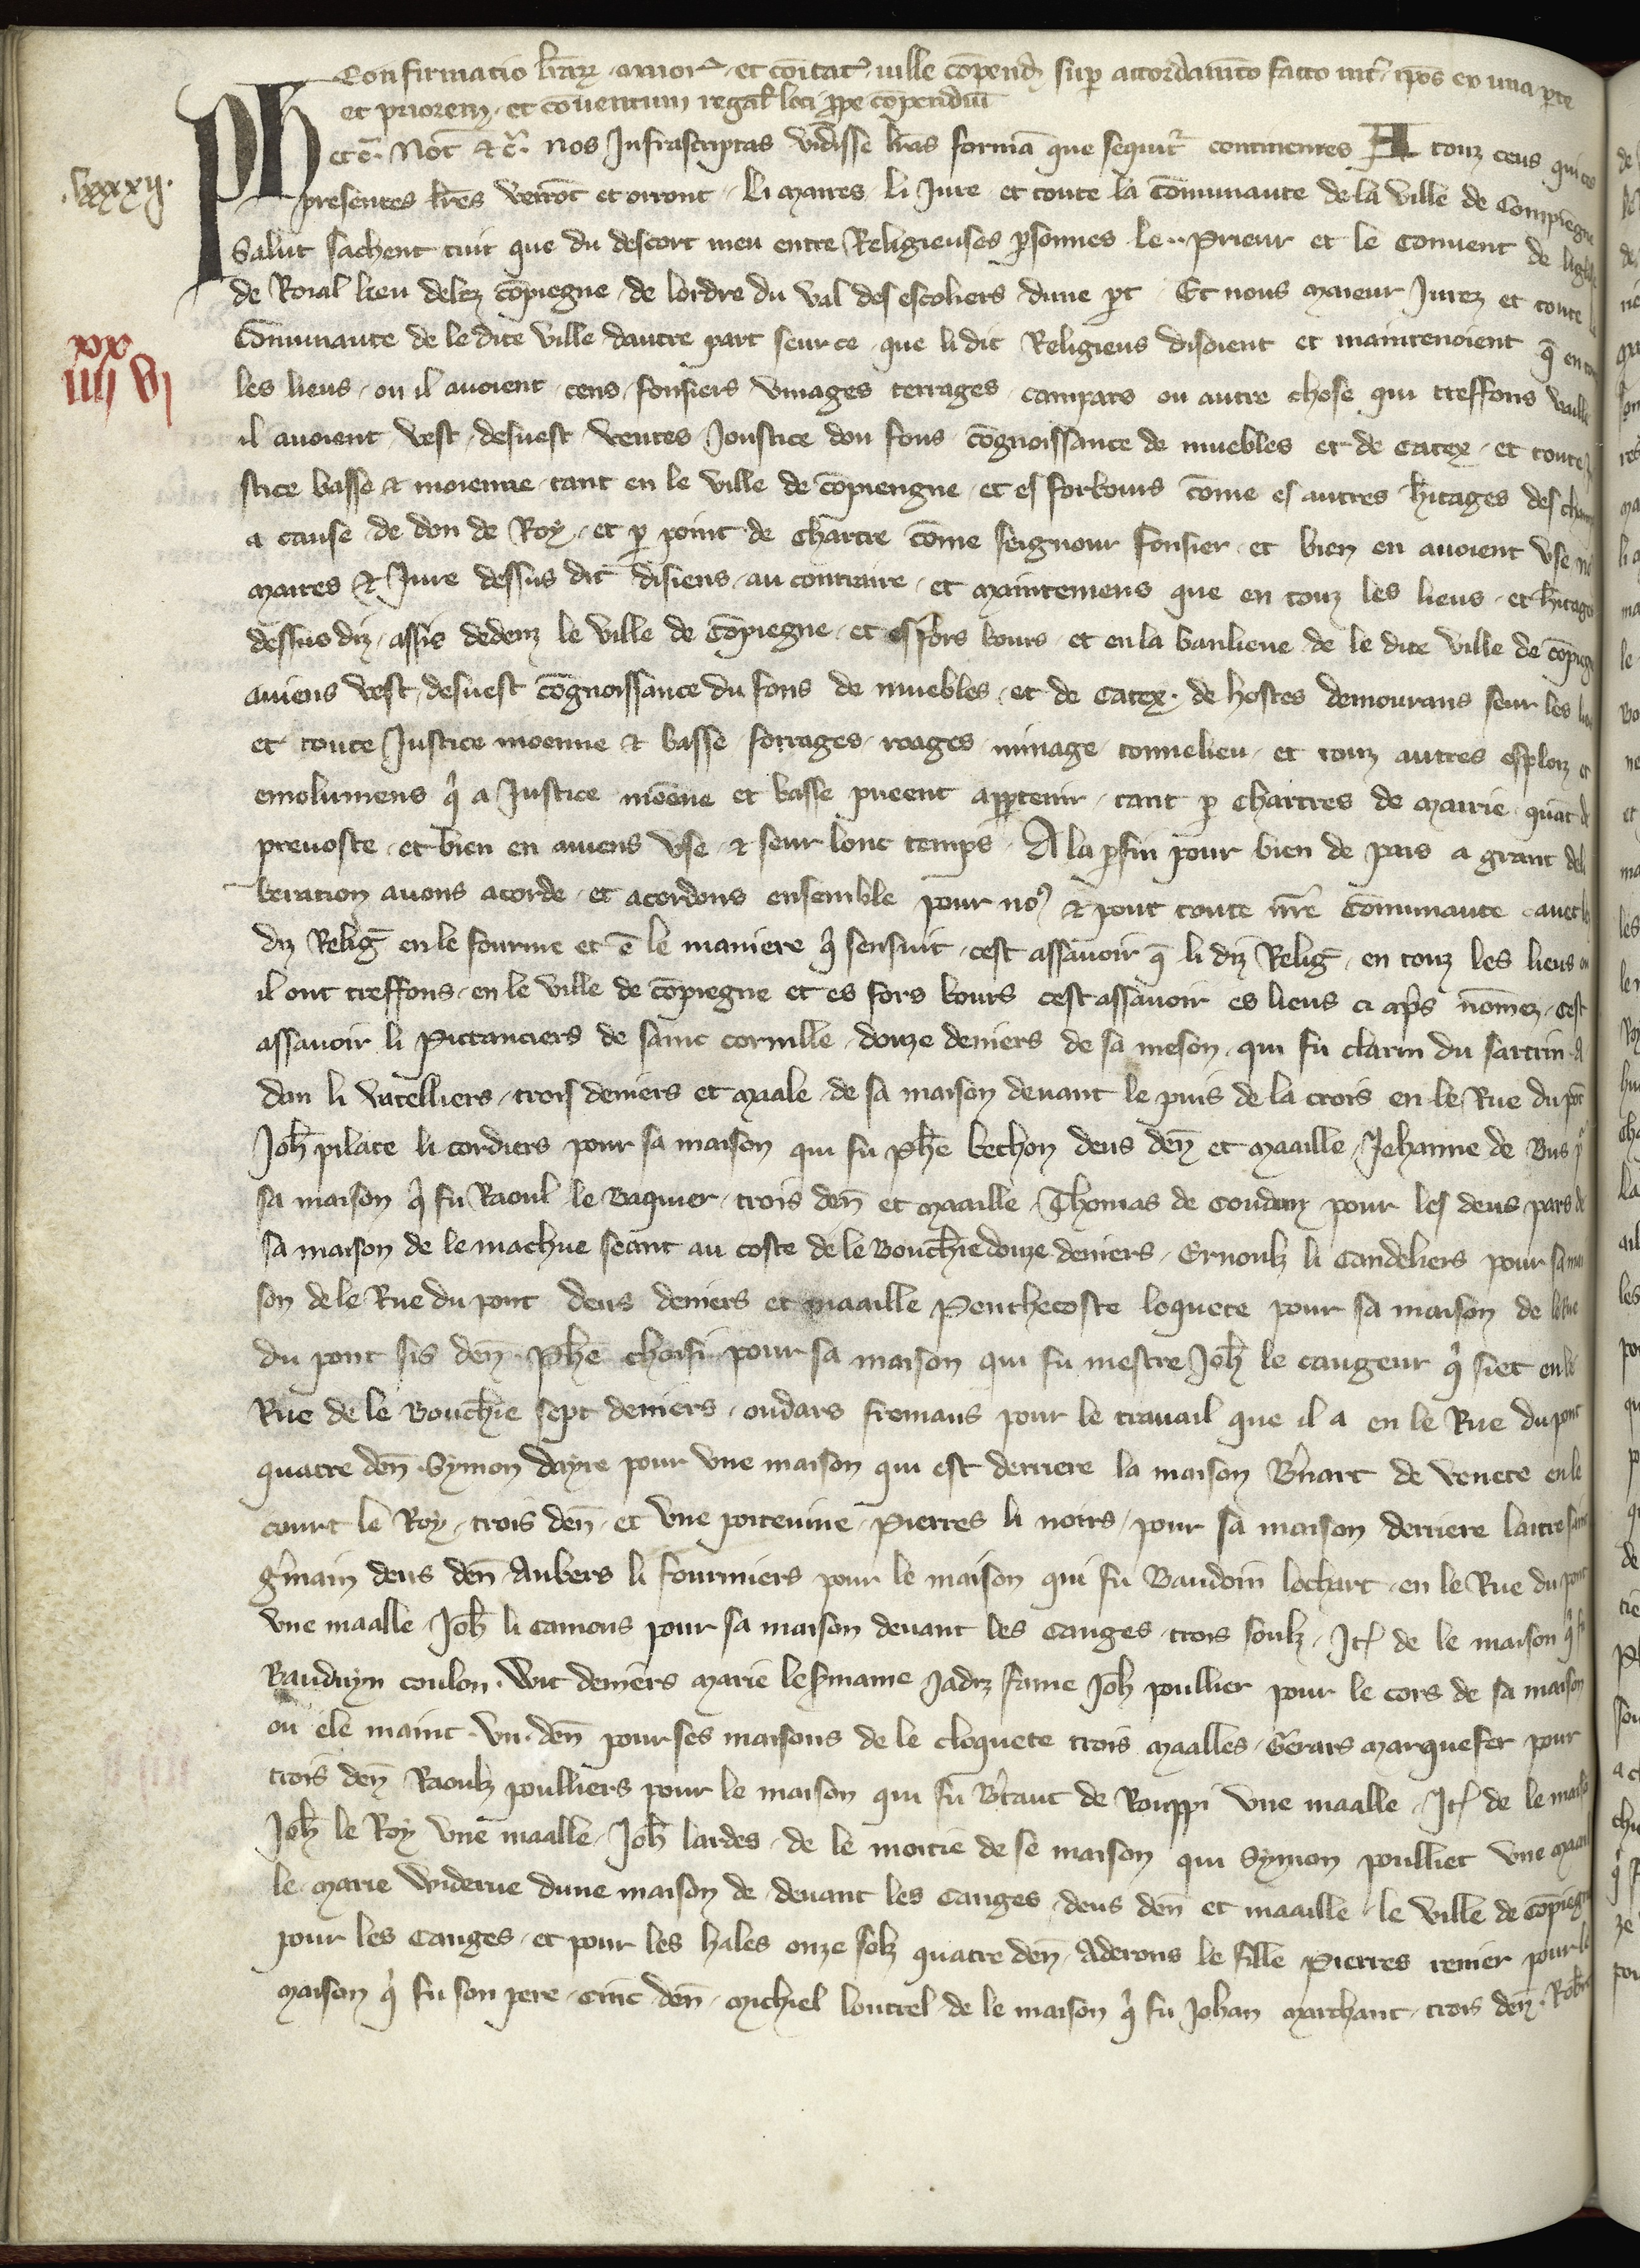 Confirmatio lr̄ar maior et cōitat ville cōpend sup accordam̄to facto int ip̄os ex una p̄te
et priorem et conventum regal loci prope compendiū
Ph etc̄. Not̄ &c̄. nos Infrascriptas vidisse lr̄as formā que sequit̄ continentes A touz ceus qui ces
.lxxxxij.
presentes lr̄es verrōt et orront. Li maires li Jure et toute la cōmunaute de la ville de Compiegne
Salut sachent tuit que du descort meu entre Religieuses p̄sonnes le .. Prieur et le Couvent de liglise
de Roial lieu delez cōpiegne de lordre du val des escoliers dune p̄t Et nous maieur Jurez et toute la
Cōmunaute de le dite ville dautre part seur ce que li dit Religieus disoient et maintenoient q̄ en touz
xx
iiii vi
les lieus ou il avoient cens fonsiers vinages terrages campars ou autre chose qui treffons vaille
il avoient vest desvest ventes Joustice dou fons cōgnoissance de muebles et de catex et toute Ju
stice basse & moienne tant en le ville de cōpiengne et es forbours cōme es autres h̄itages des champs
a cause de don de Roy et p̄ point de chartre cōme seignour fonsier et bien en avoient use nous
maires & Jure dessus dit disiens au contraire et mainteniens que en touz les lieus et h̄itages
dessus diz assis dedenz le ville de Cōpiegne et es fors bours et en la banlieue de le dite ville de cōpiegne
aviens vest desvest cōgnoissance du fons de muebles et de catex de hostes demourans seur les lieus
et toute Justice moienne & basse forrages roages minage tonnelieu et touz autres esploiz et
emolumens q̄ a Justice moēne et basse pueent app̄tenir tant p̄ chartres de mairie quāt de
prevoste et bien en aviens use & seur lonc temps A la p̄fin pour bien de pais a grant deli
beration avons acorde et acordons ensemble pour no9 & pour toute nr̄e Cōmunaute avec les
diz Reliḡ en le fourme et ē le maniere q̄ sensuit cest assavoir q̄ li diz Reliḡ en touz les lieus ou
il ont treffons en le ville de cōpiegne et es fors bours cest assavoir es lieus ci ap̄s nōmez cest
assavoir li Pittanciers de saint cornille douze deniers de sa meson qui fu clarin du sartrin A
dan li viteliers trois deniers et maale de sa maison devant le puis de la crois en le Rue du pōt
Joh̄ pilate li cordiers pour sa maison qui fu Ph̄e bechon deus den̄ et maaille Jehanne de Bus p̄
sa maison q̄ fu Raoul le Baquier trois den̄ et maaille Thomas de Coudun pour les deus pars de
sa maison de le machue seant au coste de le Bouch̄ie douze deniers Ernoulz li Candeliers pour sa mai
son de le Rue du pont deus deniers et maaille Penthecoste loquete pour sa maison de le Rue
du pont sis den̄ Ph̄e choisi pour sa maison qui fu mestre Joh̄ le caugeur q̄ siet en le
Rue de le Bouch̄ie sept deniers oudars fremaus pour le travail que il a en le Rue du pont
quatre den̄ Symon dayre pour une maison qui est derriere la maison B̄nart de venete en le
court le Roy trois den̄ et une poitevine Pierres li noirs pour sa maison derriere laitre saint
ḡmain deus den̄ Aubers li fourniers pour le maison qui fu Baudoin lochart en le Rue du pont
une maalle Joh̄ li camous pour sa maison devant les Canges trois soulz It̄ de le maison q̄ fu
Bauduyn coulon. Wit deniers marie lespmaine Jadiz fame Joh̄ poullier pour le cors de sa maison
ou ele maint un. den̄ pour ses maisons de le cloquete trois maalles Gerars marquefer pour
trois den̄ Raoulz poulliers pour le maison qui fu B̄taut de Rouppi une maalle It̄ de le maison
Joh̄ le Roy une maalle Joh̄ lardes de le moitie de se maison qui Symon poulliet une maal
le marie widerue dune maison de devant les Canges deus den̄ et maaille le ville de cōpiegne
pour les Canges et pour les hales onze solz quatre den̄ Aderons le fille Pierres renier pour le
maison q̄ fu son pere cinc den̄ michiel loutrel de le maison q̄ fu Johan marchant trois den̄. Rob̄